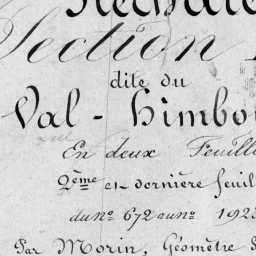 Section
dite du
Val - Himbo
En deux Feuill
2ème et dernière feuil
du nº 672 au nº 1923
Par Morin, Géomètre